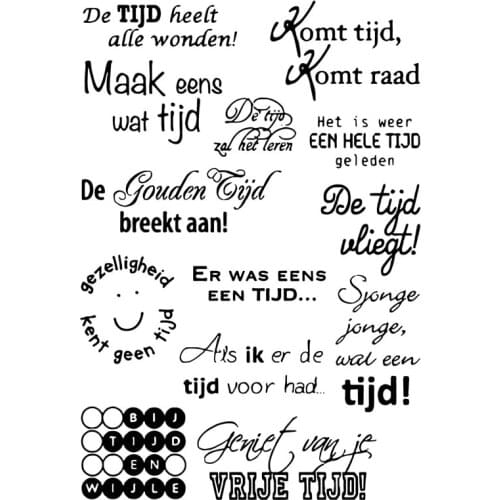 De TIJD heelt
alle wonden!
Komt tijd,
Komt raad
Maak eens
wat tijd
De tijd
zal het leren
Het is weer
EEN HELE TIJD
geleden
De Gouden Tijd
breekt aan!
De tijd
vliegt!
gezelligheid
kent geen tijd
ER WAS EENS
EEN TIJD...
Sjonge
jonge,
wat een
tijd!
Als ik er de
tijd voor had...
BIJ
TIJD
EN
WIJLE
Geniet van je
VRIJE TIJD!